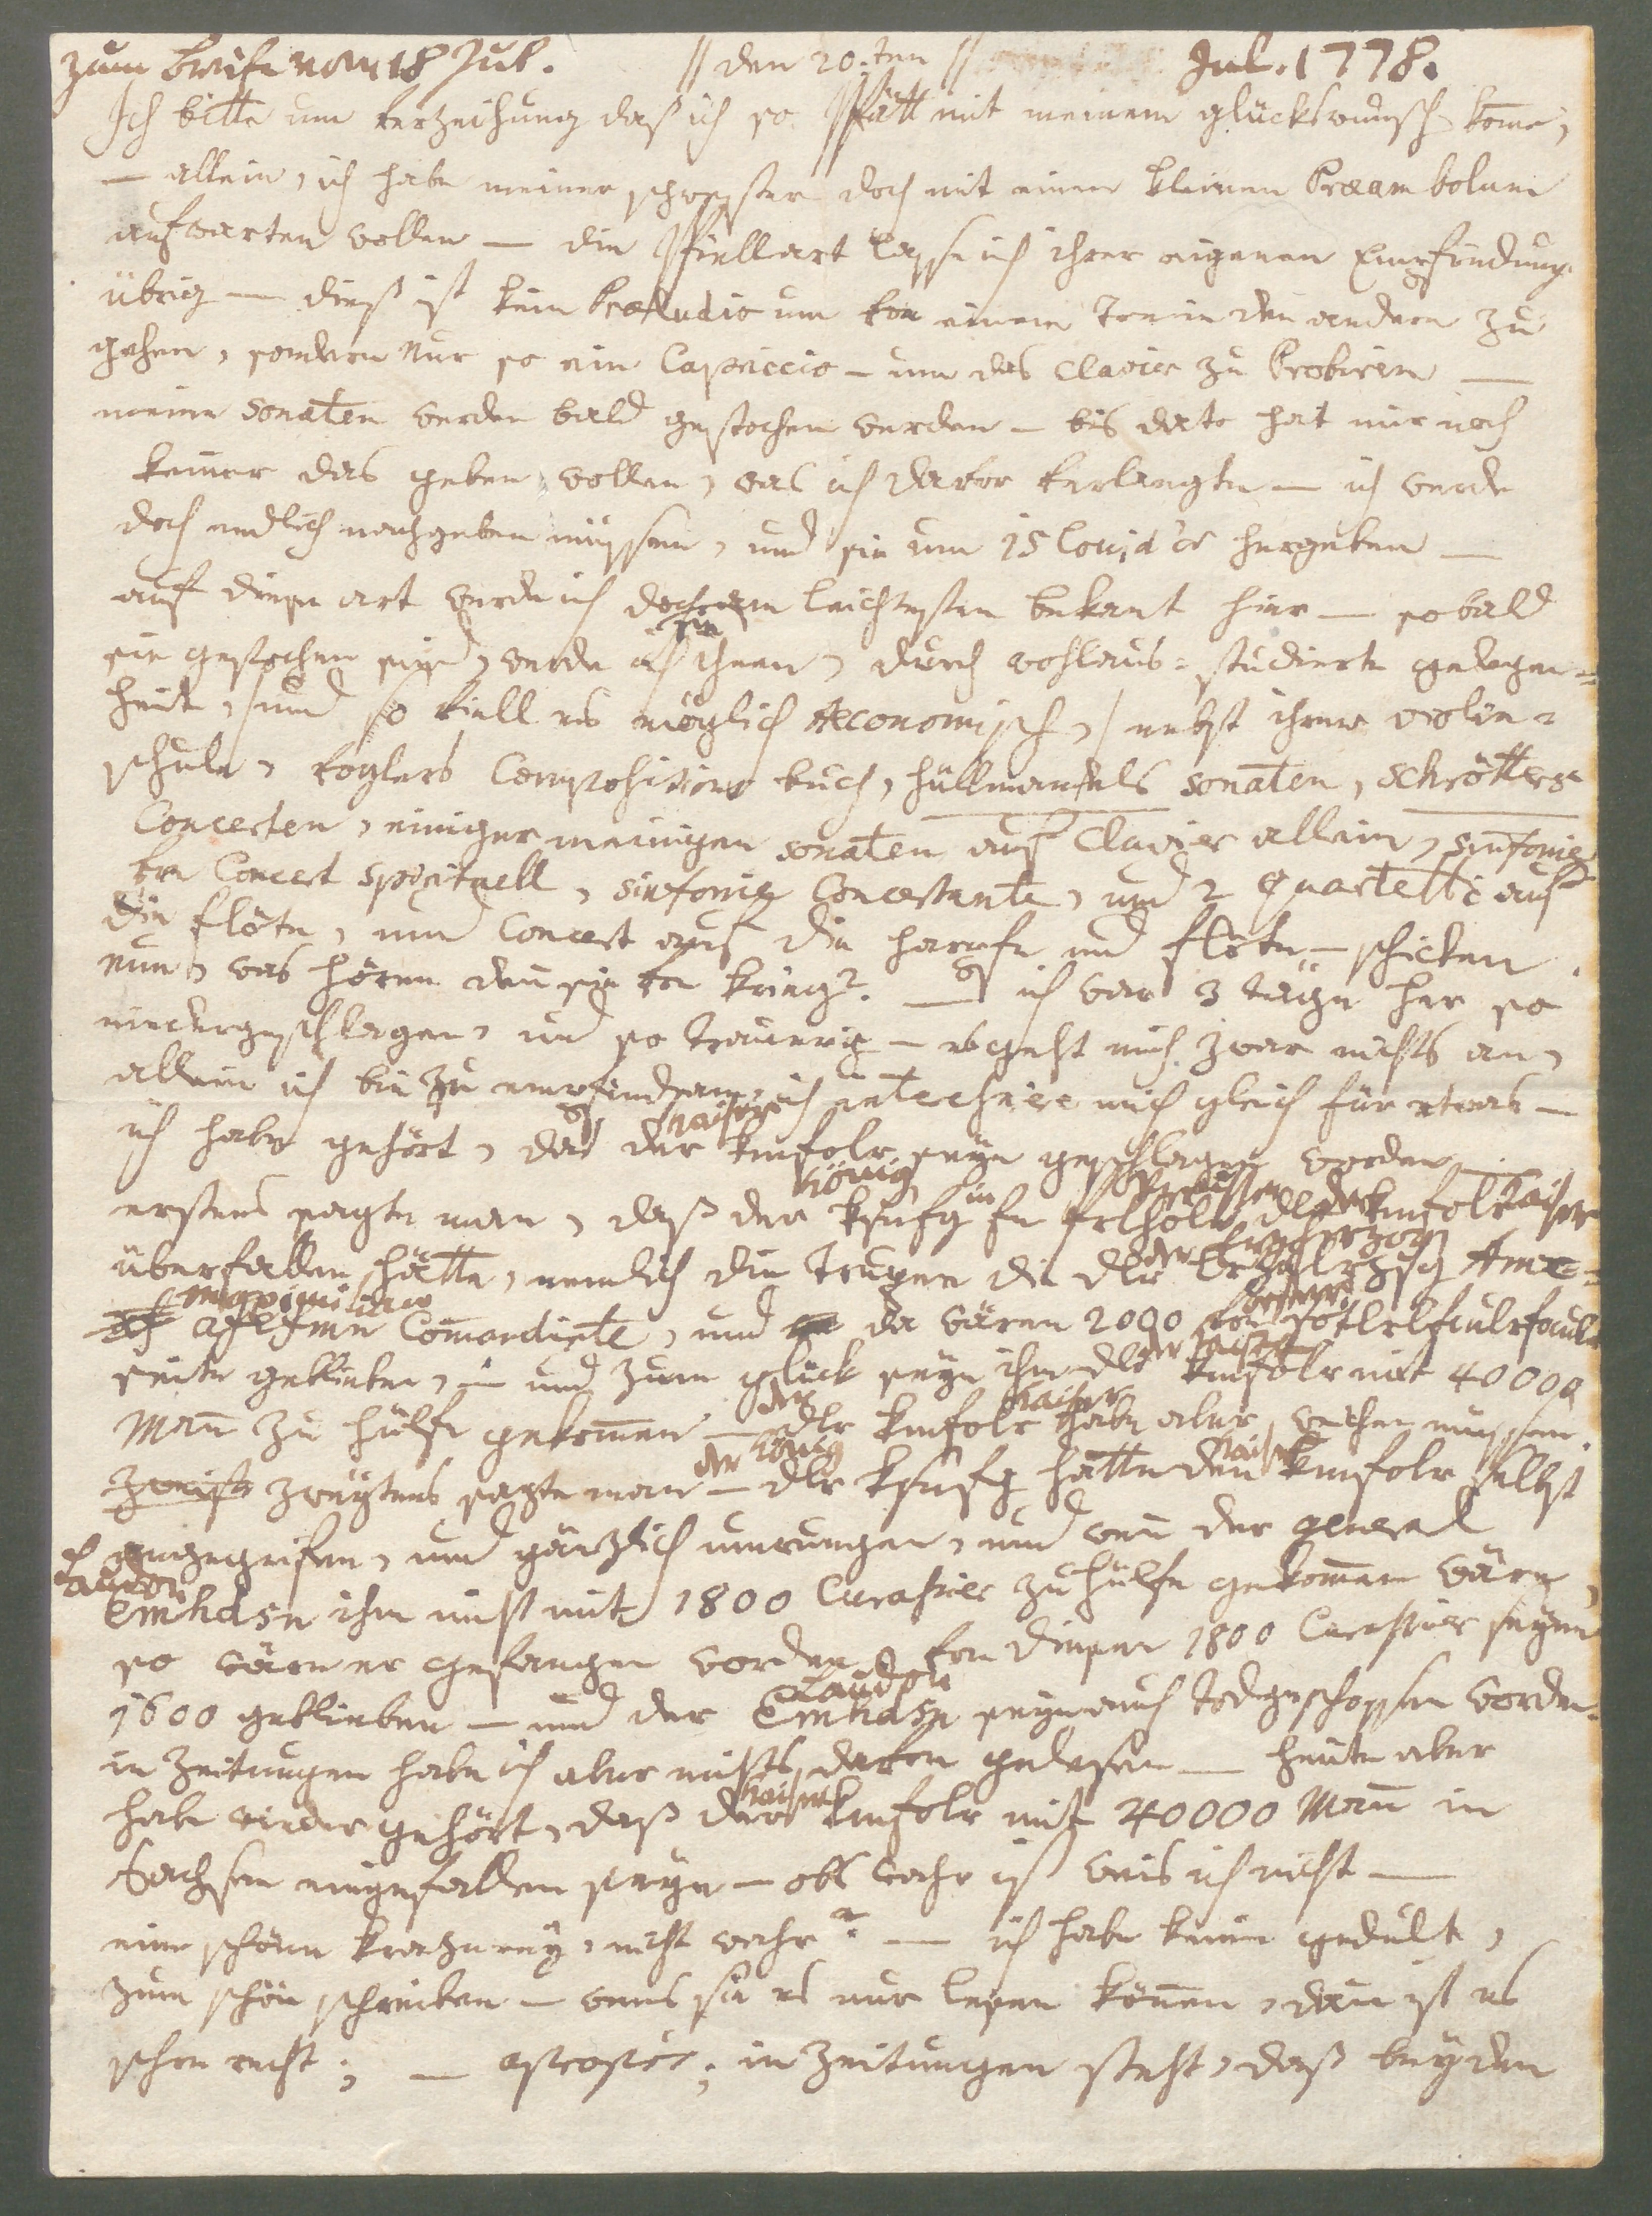 zum Briefe vom 18 Jul. // den 20:ten // Jul. 1778.
Ich bitte um verzeihung daß ich so spätt mit meinem glückswunsch komme,
— allein, ich habe meiner schwester doch mit einem kleinen Præambolum
aufwarten wollen — die spiellart lasse ich ihrer eigenen Empfindung
übrig — dieß ist kein Præludio um von einem Ton in den andern zu
gehen, sondern nur so ein Capriccio — um das Clavier zu Probiren —
meine Sonaten werden bald gestochen werden — bis dato hat mir noch
keiner das geben wollen, was ich davor verlangte — ich werde
doch endlich nachgeben müssen, und sie um 15 louis d'or hergeben —
auf diese art werde ich doch am leichtesten bekant hier — sobald
sie
sie gestochen sind, werde ich ihnen, durch wohlaus-studierte gelegen=
heit, /und so viell es möglich Æconomisch,/ nebst ihrer violin=
schule, voglers Compositions buch, hüllmandels sonaten, schrötters
Concerten, einiger meinigen sonaten auf Clavier allein, sinfonie
vom Concert spirituell, sinfonie Concertante, und 2 quartetti auf
die flöte, und Concert auf die harpfe und flöte — schicken.
nun, was hören denn sie vom krieg? — ich war 3 täge her so
niedergeschlagen, und so traurig — es geht mich zwar nichts an,
allein ich bin zu empfindsam, ich interessire mich gleich für etwas —
kaiser
ich habe gehört, daß der kmfolr seye geschlagen worden —
könig in Preussen der kaiser
erstens sagte man, daß der
der Erzherzog
überfallen hätte, nemlich die Trupen die dlr Amx=
Maximilian
Comandirte, und da wären 2000 von
oesterr:
der kaiser
seite geblieben, — und zum glück seye ihm dlr kmfolr mit 40000
der kaiser
Mann zu hülfe gekommen — dlr kmfolr habe aber weichen müssen.
der könig kaiser
zweytens sagte man — dlr hätte den kmfolr selbst
angegriffen, und gänzlich umrungen, und wenn der general
Laudon
ihm nicht mit 1800 Curassier zu hülfe gekommen wäre,
so wäre er gefangen worden, von diesen 1800 Curassier seyen
Laudon
1600 geblieben — und der seye auch todgeschossen worden.
in zeitungen habe ich aber nichts davon gelesen — heute aber
kaiser
habe wieder gehört, daß der kmfolr mit 40000 Mann in
Sachsen eingefallen seye — obs wahr ist weis ich nicht —
eine schöne krazerey, nicht wahr? — ich habe keine gedult,
zum schön schreiben — wenns sie es nur lesen können, dann ist es
schon recht; — apropós; in zeitungen steht, daß bey den